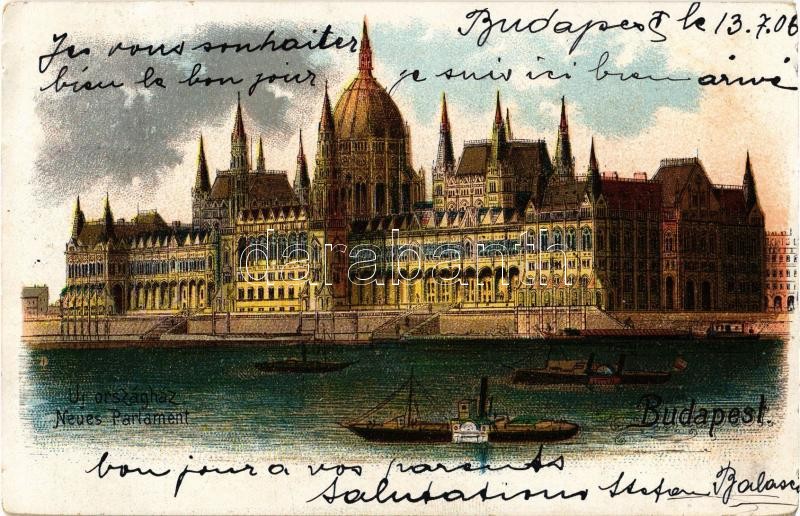 Budapest le 13.7.06
Jes vous sonhaiter
bien le bon jour je suis ici bien arivé
darabanth
Uj országház.
Neues Parlament
Budapest.
bon jour a vos parents
Salutations Stefan